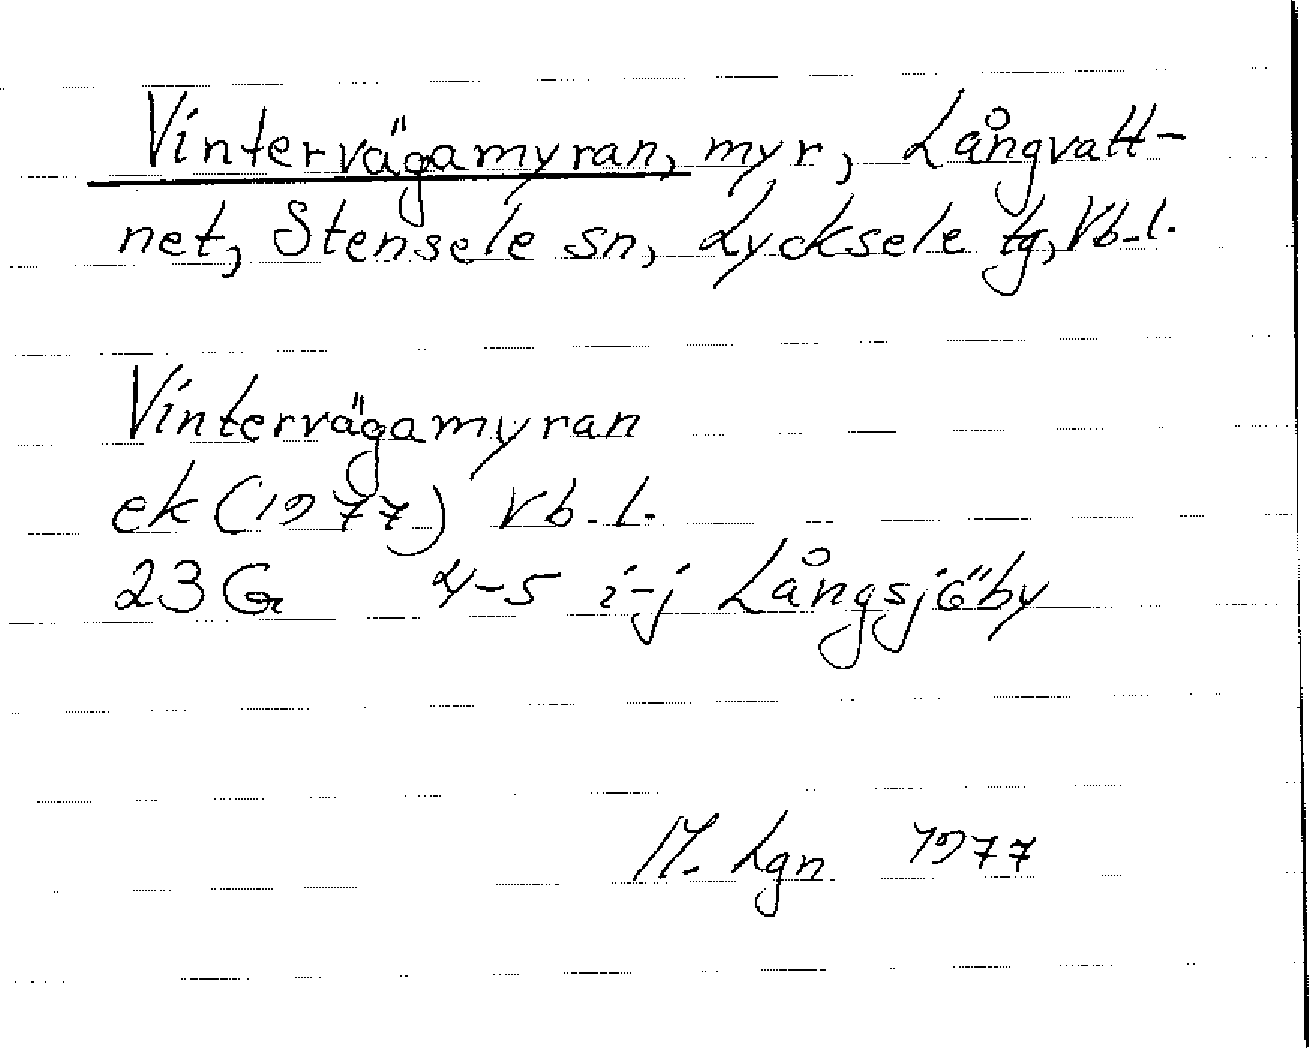 Vintervägamyran, myr, Långvatt-
net, Stensele sn, Lycksele tg, Vb. l.
Vintervägamyran
ek (1977) Vb. l.
23 G 4-5 i-j Långsjöby
M. Lgn 1977